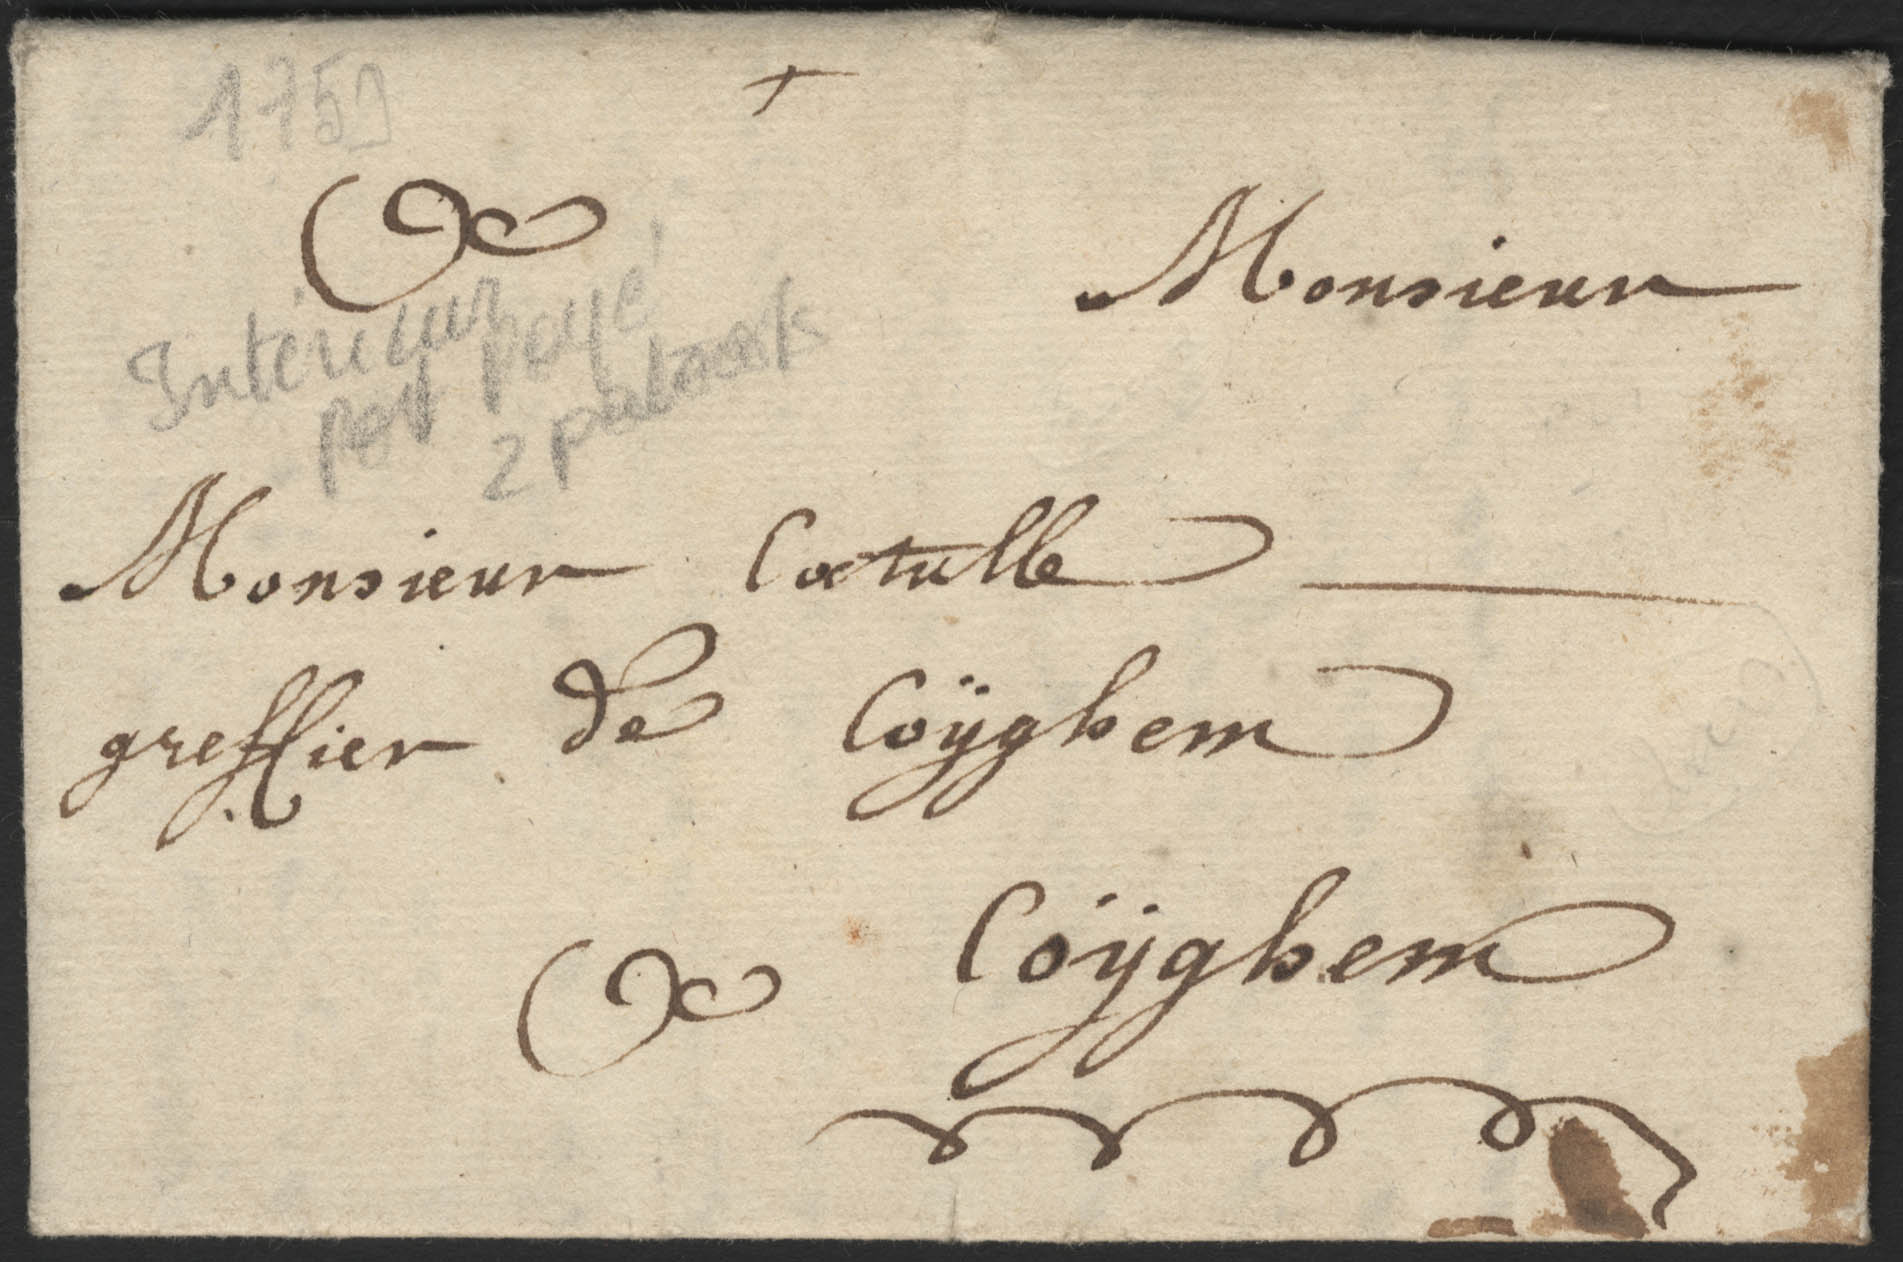 175
Monsieur
Intérieur
port payé
2 patards
Monsieur Catulle
greffier de Coÿghem
Coÿghem